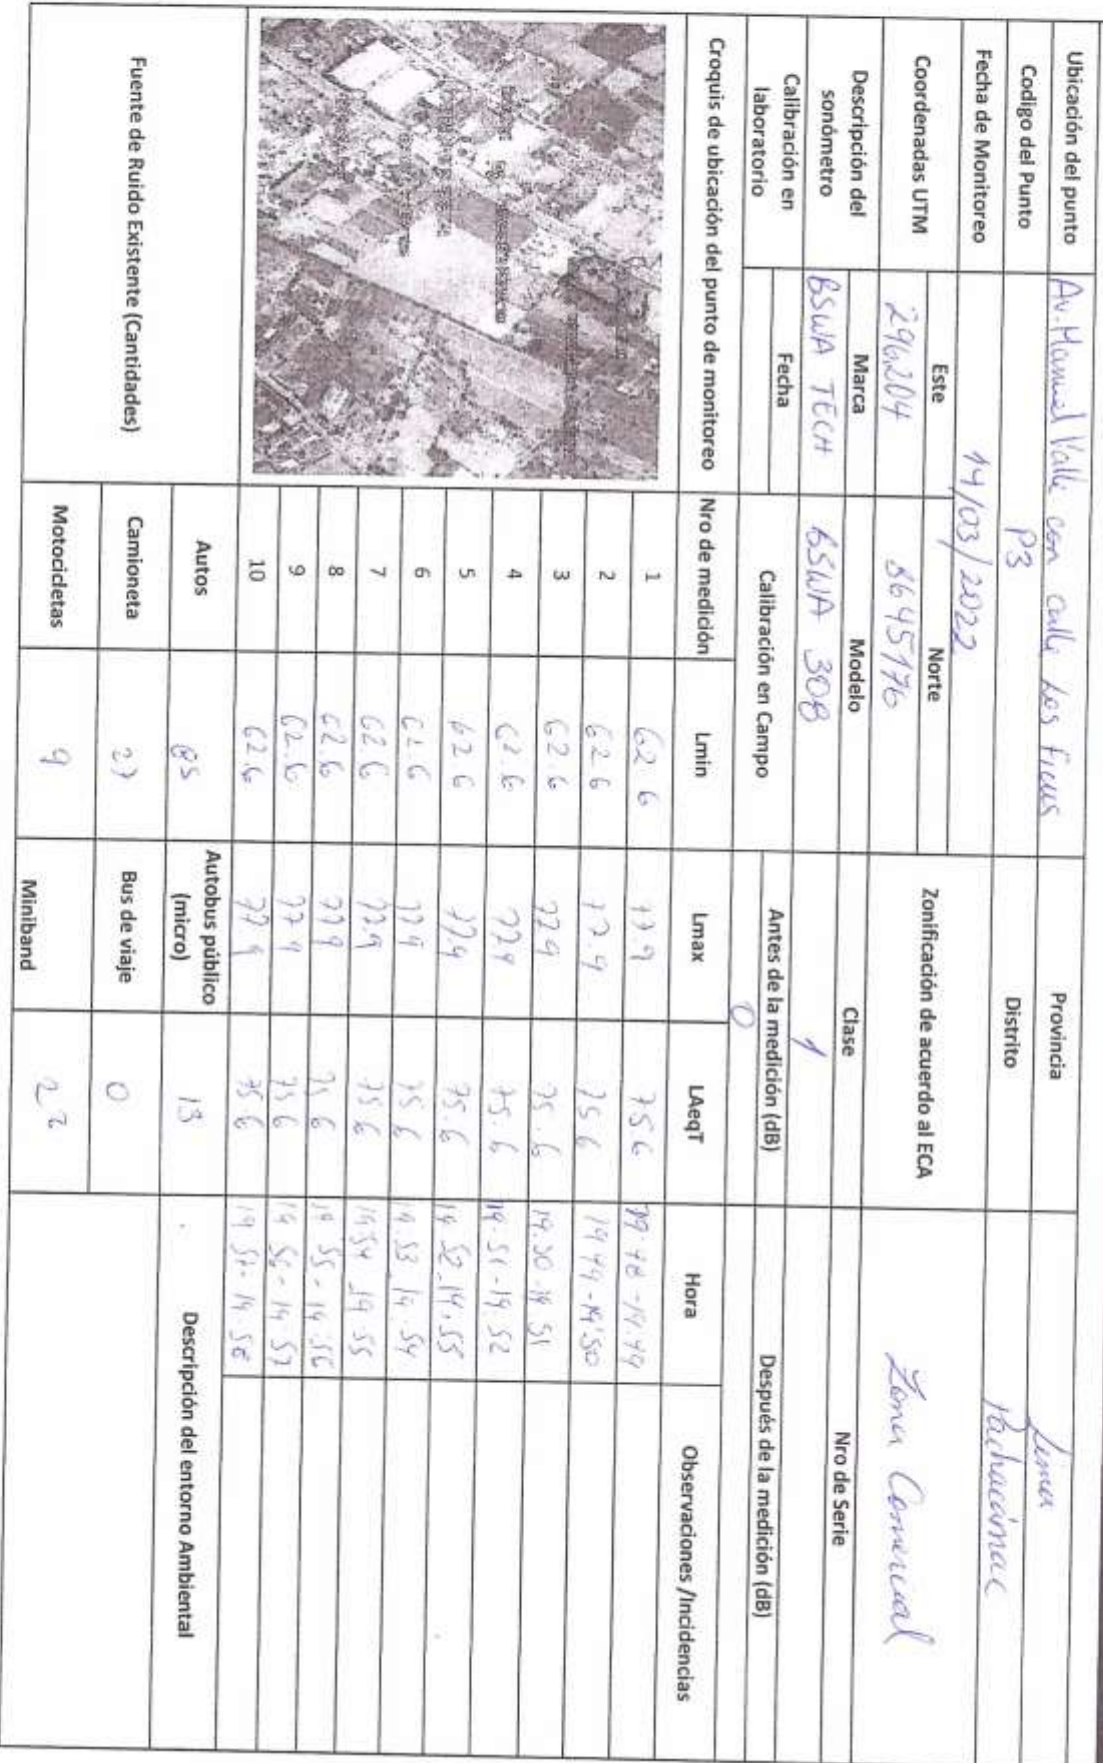 Ubicación del punto Av. Manuel Valle con calle Los Ficus Provincia Lima
Codigo del Punto P3 Distrito Pachacámac
Fecha de Monitoreo 14/03/2022
Coordenadas UTM Este Norte Zonificación de acuerdo al ECA Zona Comercial
296204 8645176
Descripción del sonómetro Marca Modelo Clase Nro de Serie
BSWA TECH BSWA 308 1
Calibración en laboratorio Fecha Calibración en Campo Antes de la medición (dB) Después de la medición (dB)
0
Croquis de ubicación del punto de monitoreo Nro de medición Lmin Lmax LAeqT Hora Observaciones /Incidencias
1 62.6 77.9 75.6 19.48 - 19.49
2 62.6 77.9 75.6 19 49 - 19:50
3 62.6 77.9 75.6 19.50 - 19 51
4 62.6 77.9 75.6 19.51 - 19.52
5 62.6 77.9 75.6 19.52 - 19.53
6 62.6 77.9 75.6 19.53 19.54
7 62.6 77.9 75.6 19.54 - 19 55
8 62.6 77.9 75.6 19 55 - 19.56
9 62.6 77.9 75.6 19 56 - 19 57
10 62.6 77.9 75.6 19 57 - 19.58
Fuente de Ruido Existente (Cantidades) Autos 85 Autobus público (micro) 13 Descripción del entorno Ambiental
Camioneta 27 Bus de viaje 0
Motocicletas 9 Miniband 22